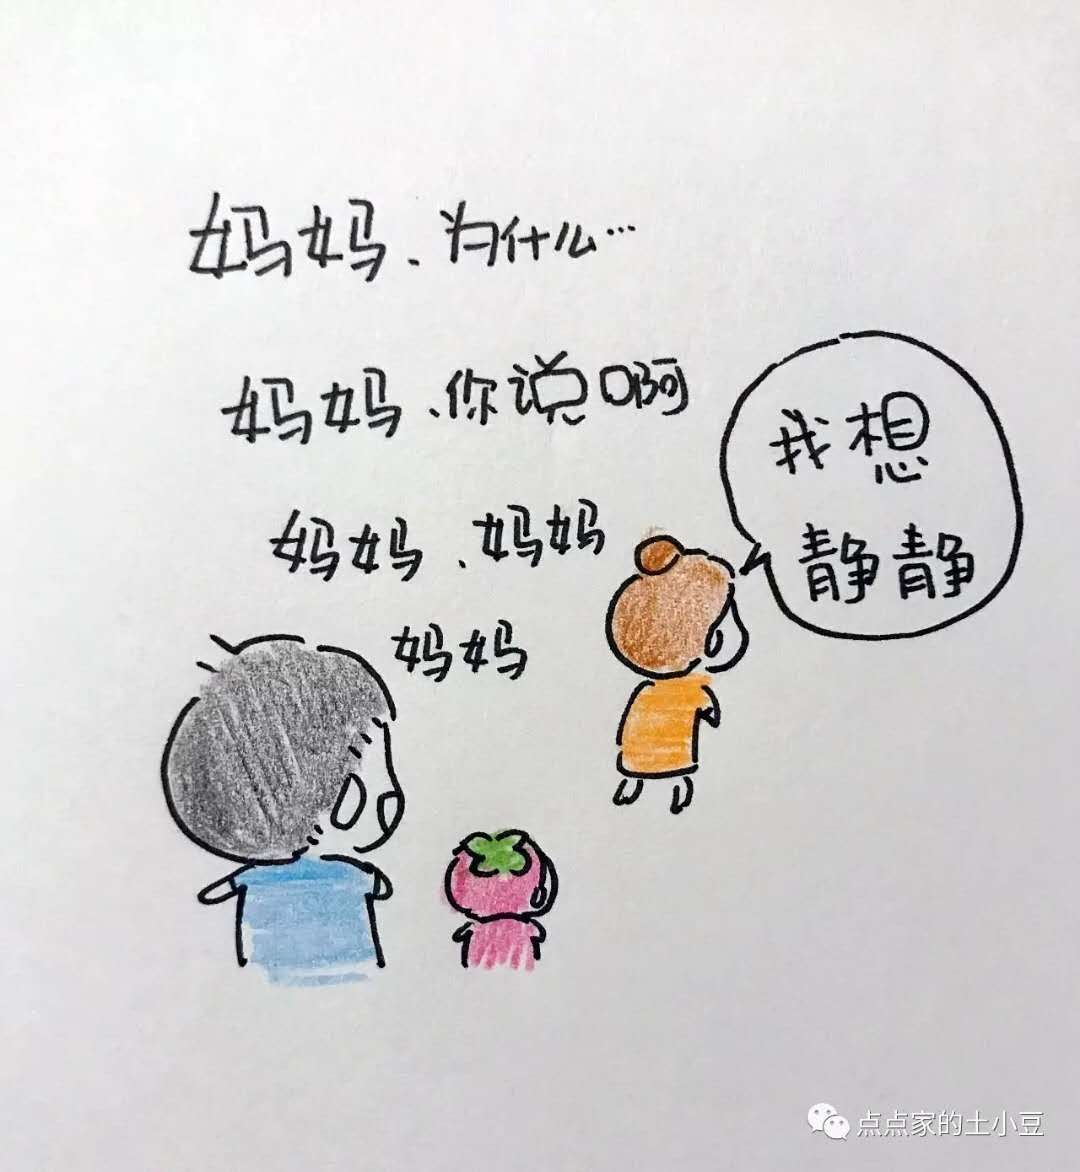 妈妈、为什么…
妈妈、你说啊
妈妈、妈妈
妈妈
我想
静静
点点家的土小豆